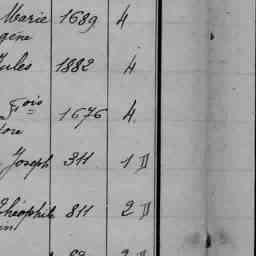 Marie 1689 4
gène
Jules 1882 4
Fois 1676 4
dore
Joseph 311 1 D
Théophile 811 2 D
in